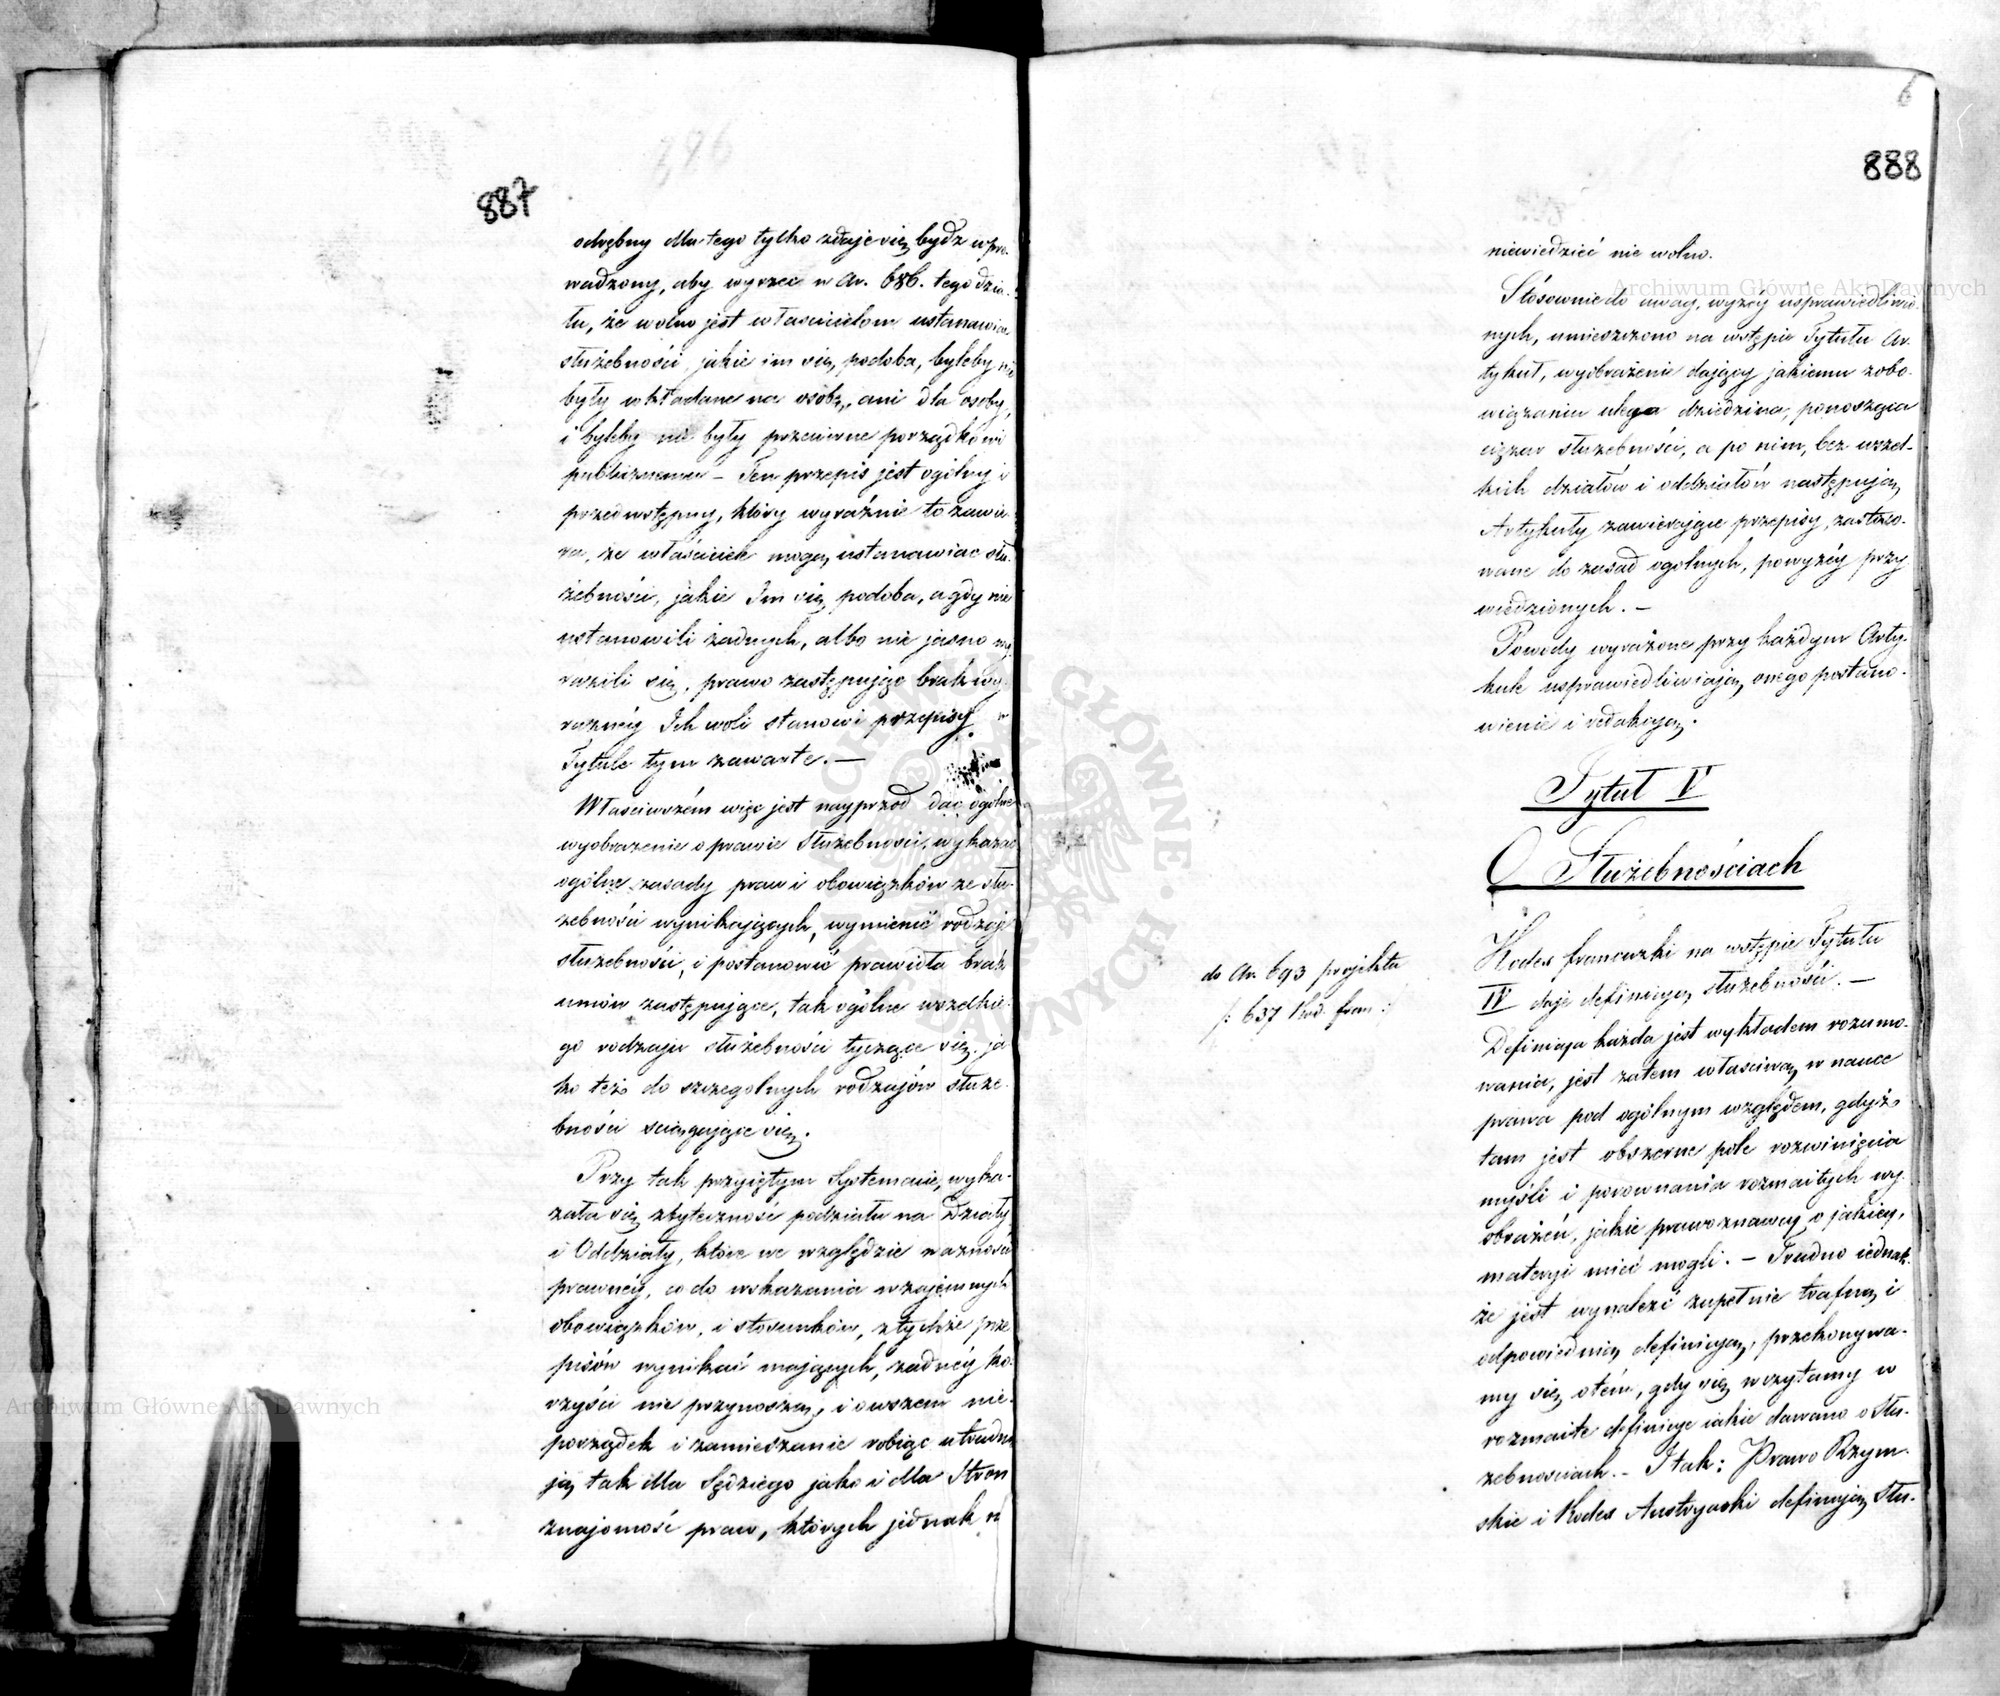 887
odrębny dla tego tylko zdaje się bydz wpro-
wadzony, aby wyrzec w Ar. 686. tego dzia-
łu, że wolno jest właścicielom ustanawiać
służebności, jakie im się podoba, byleby nie
były wkładane na osobę, ani dla osoby,
i byleby nie były przeciwne porządkowi
publicznemu – Ten przepis jest ogólny i
przedwstępny, który wyraźnie to zawie-
ra, że właściciele mogą ustanawiac słu-
żebności, jakie Im się podoba, a gdy nie
ustanowili żadnych, albo nie jasno wy-
razili się, prawo zastępując brak wy-
raznéy Ich woli stanowi przepisy w
Tytule tym zawarte. —
Właściwszém więc jest nayprzod dac ogólne
wyobrazenie o prawie Służebności, wykazac
ogólne zasady praw i obowiązków ze słu-
żebności wynikających, wymienić rodzaje
służebności, i postanowić prawidła brak
umów zastępujące, tak ogólne wszelkie-
go rodzaju służebności tyczące się, ja-
ko też do szczegolnych rodzajów służe-
bności sciągające się.
Przy tak przyiętym Systemacie, wyka-
zała się zbyteczność podziału na Działy
i Oddziały, które we względzie ważności
prawnéy, co do wskazania wzajemnych
obowiązków, i stosunków, z tychże prze-
pisów wynikać mających, żadnéy ko-
rzyści nie przynoszą, i owszem nie-
porządek i zamieszanie robiąc utrudnia-
ją tak dla Sędziego jako i dla Stron
znajomość praw, których jednak
6
888
niewiedzieć nie wolno.
Stósownie do uwag, wyzéy usprawiedliwio-
nych, umieszczono na wstępie Tytułu Ar-
tykuł, wyobrażenie dający jakiemu zobo-
wiązaniu ulega dziedzina, ponosząca
ciężar służebności, a po nim, bez wszel-
kich działów i oddziałów następują
Artykuły zawierające przepisy, zastóso-
wane do zasad ogolnych, powyżéy przy-
wiedzionych. —
Powody wyrażone przy każdym Arty-
kule usprawiedliwiają, onego postano-
wienie i redakcyą.
Tytuł IV
O Służebnościach
do Ar. 693 projektu
/: 637 Kod. fran :/
Kodex francuzki na wstępie Tytułu
IV daje definicyą służebności. —
Definicya każda jest wykładem rozumo-
wania, jest zatem właściwą w nauce
prawa pod ogólnym względem, gdyż
tam jest obszerne pole rozwinięcia
myśli i porownania rozmaitych wy-
obrażeń, jakie prawoznawcy o jakiey
materyi mieć mogli. – Trudno iednak-
że jest wynaleźć zupełnie trafną i
odpowiednią definicyą, przekonywa-
my się o tém, gdy się wczytamy w
rozmaite definicye iakie dawano o Słu-
żebnosciach. – I tak: Prawo Rzym-
skie i Kodex Austryacki definiują Słu-
Archiwum Główne Akt Dawnych
Archiwum Główne Akt Dawnych